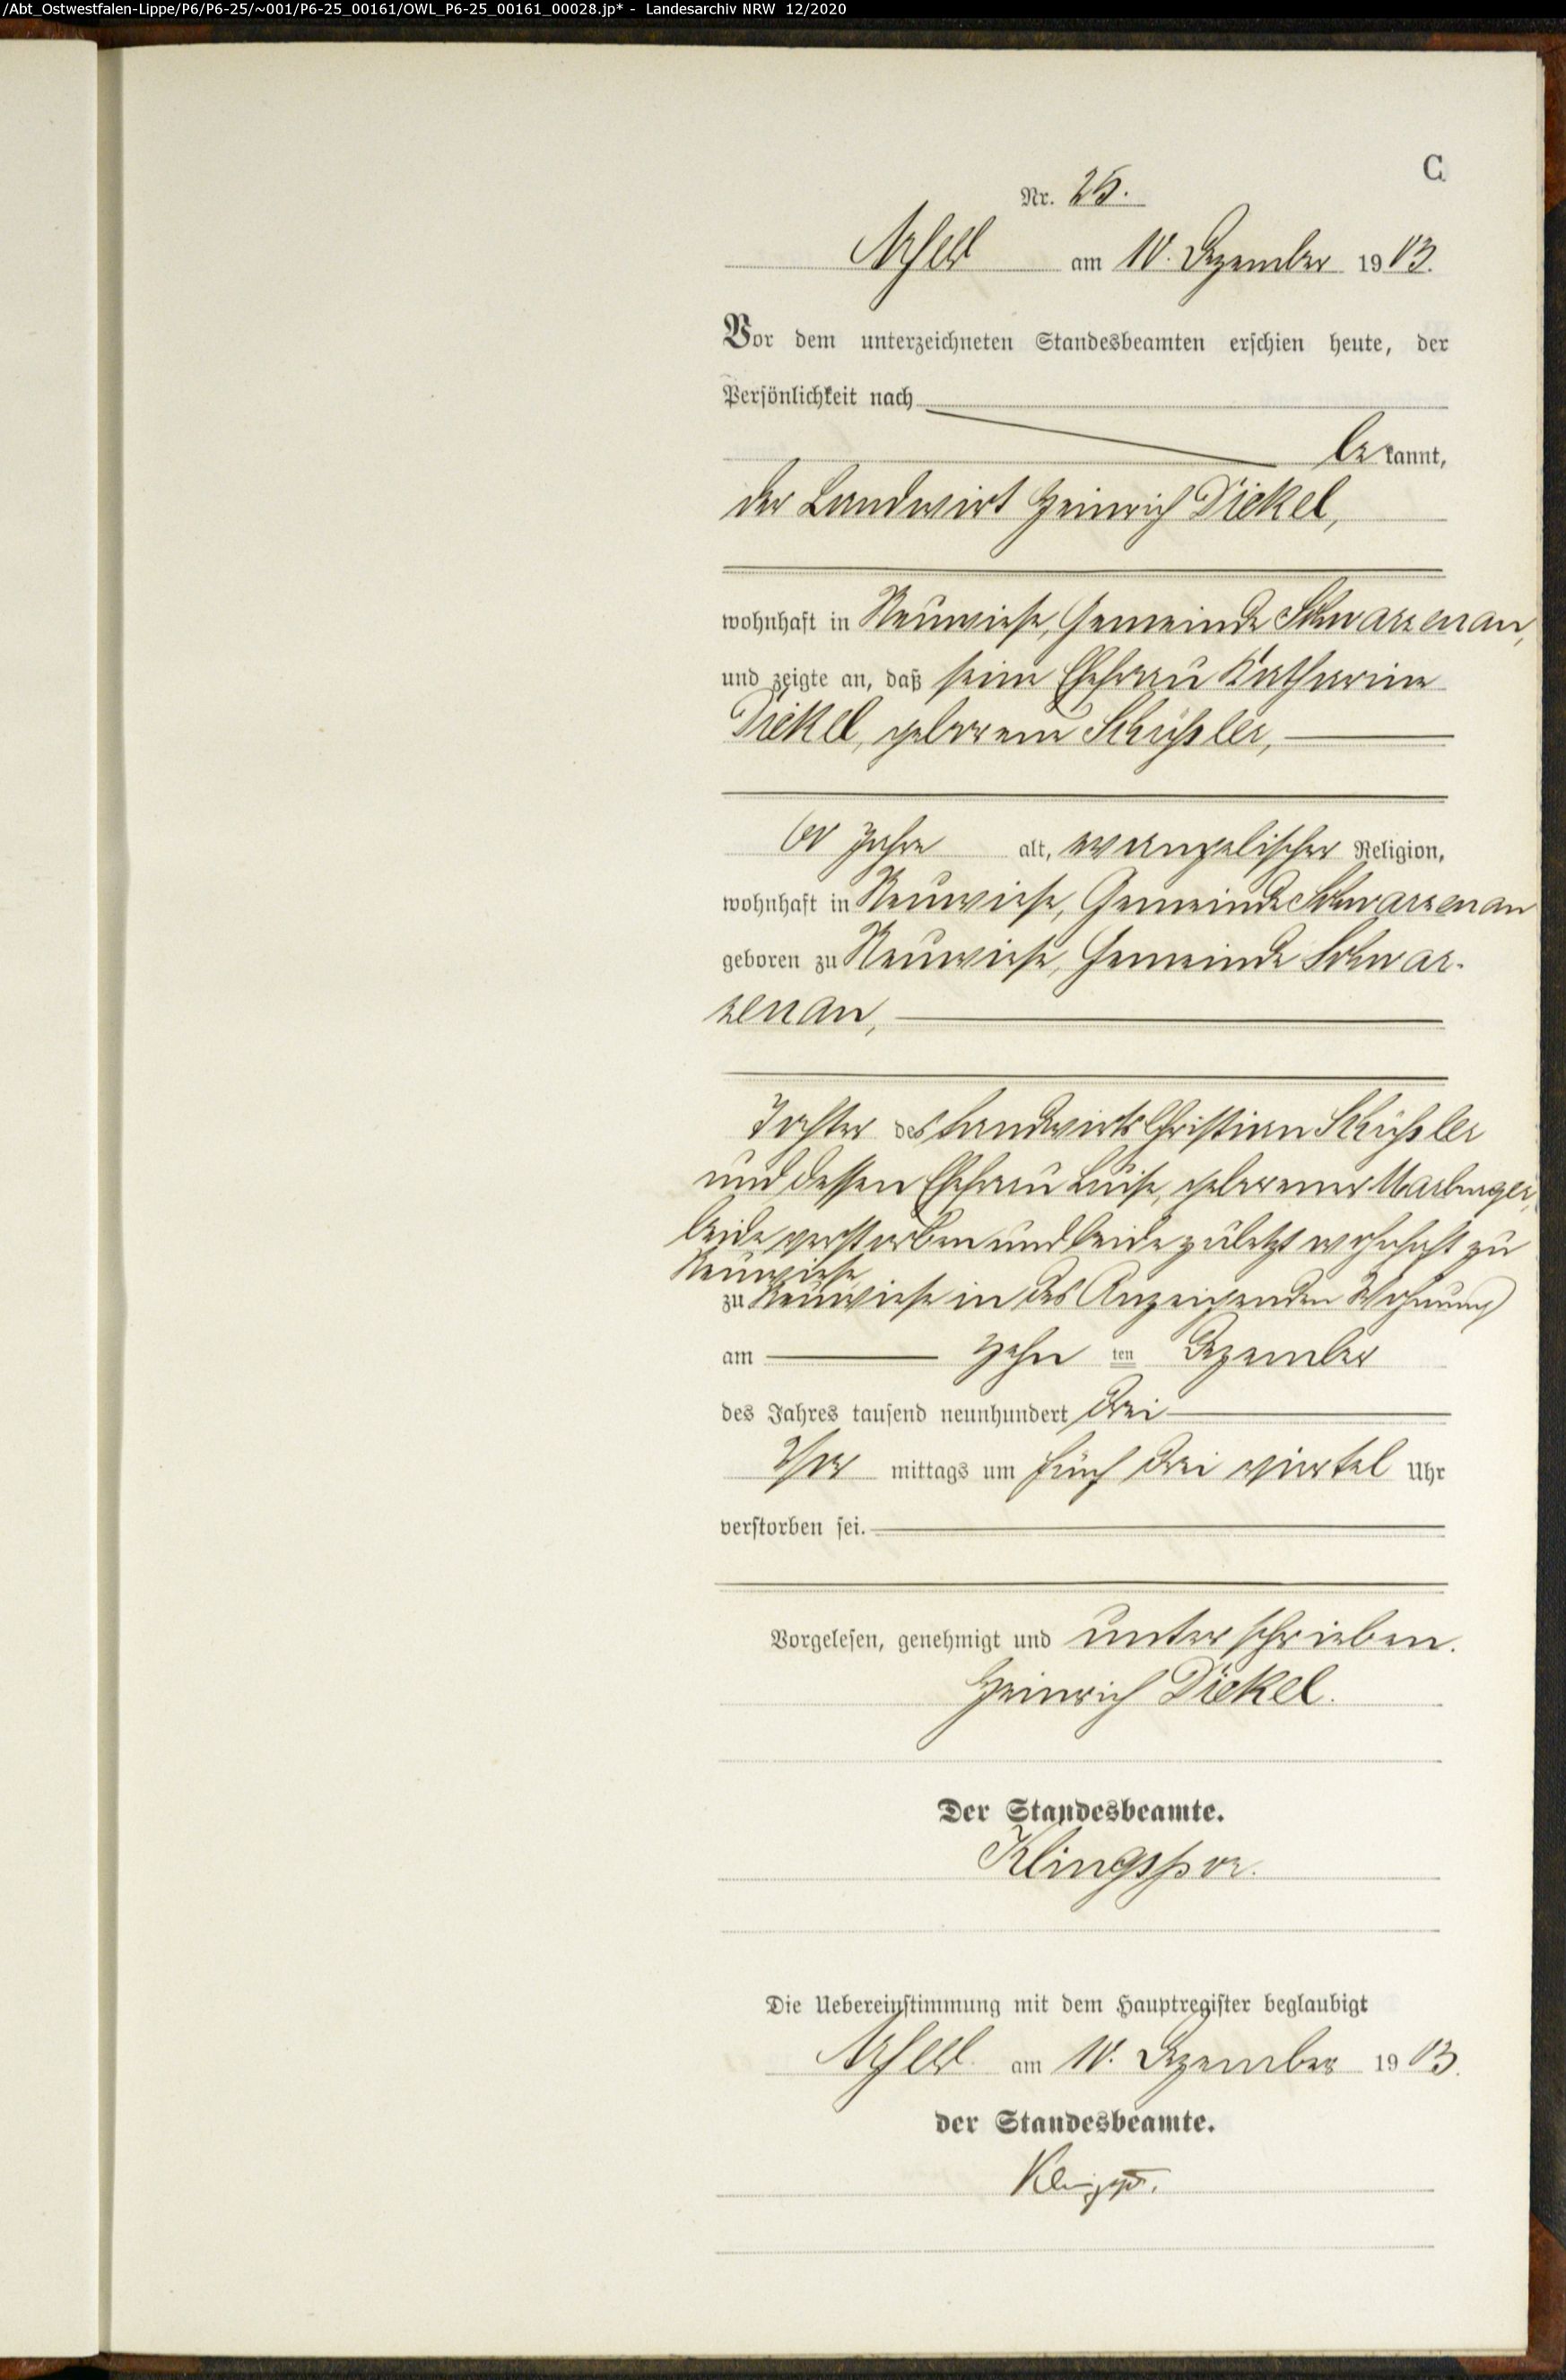 /Abt_Ostwestfalen-Lippe/P6/P6-25/~001/P6-25_00161/OWL_P6-25_00161_00028.jp* - Landesarchiv NRW 12/2020
C
Nr. 25.
Arfeld am 10. Dezember 1903.
Vor dem unterzeichneten Standesbeamten erschien heute, der
Persönlichkeit nach
bekannt,
der Landwirt Heinrich Dickel,
wohnhaft in Neuwiese, Gemeinde Schwarzenau,
und zeigte an, daß seine Ehefrau Katharine
Dickel, geborene Schüßler,
60 Jahre alt, evangelischer Religion,
wohnhaft in Neuwiese, Gemeinde Schwarzenau
geboren zu Neuwiese, Gemeinde Schwar-
zenau,
Tochter des Landwirts Christian Schüßler
und dessen Ehefrau Luise, geborener Marburger,
beide verstorben und beide zuletzt wohnhaft zu
Neuwiese,
zu Neuwiese in des Anzeigenden Wohnung
am zehn ten Dezember
des Jahres tausend neunhundert drei
Vor mittags um fünf drei viertel Uhr
verstorben sei.
Vorgelesen, genehmigt und unterschrieben.
Heinrich Dickel.
Der Standesbeamte.
Klingspor.
Die Uebereinstimmung mit dem Hauptregister beglaubigt
Arfeld. am 10. Dezember 1903.
der Standesbeamte.
Klingspor.